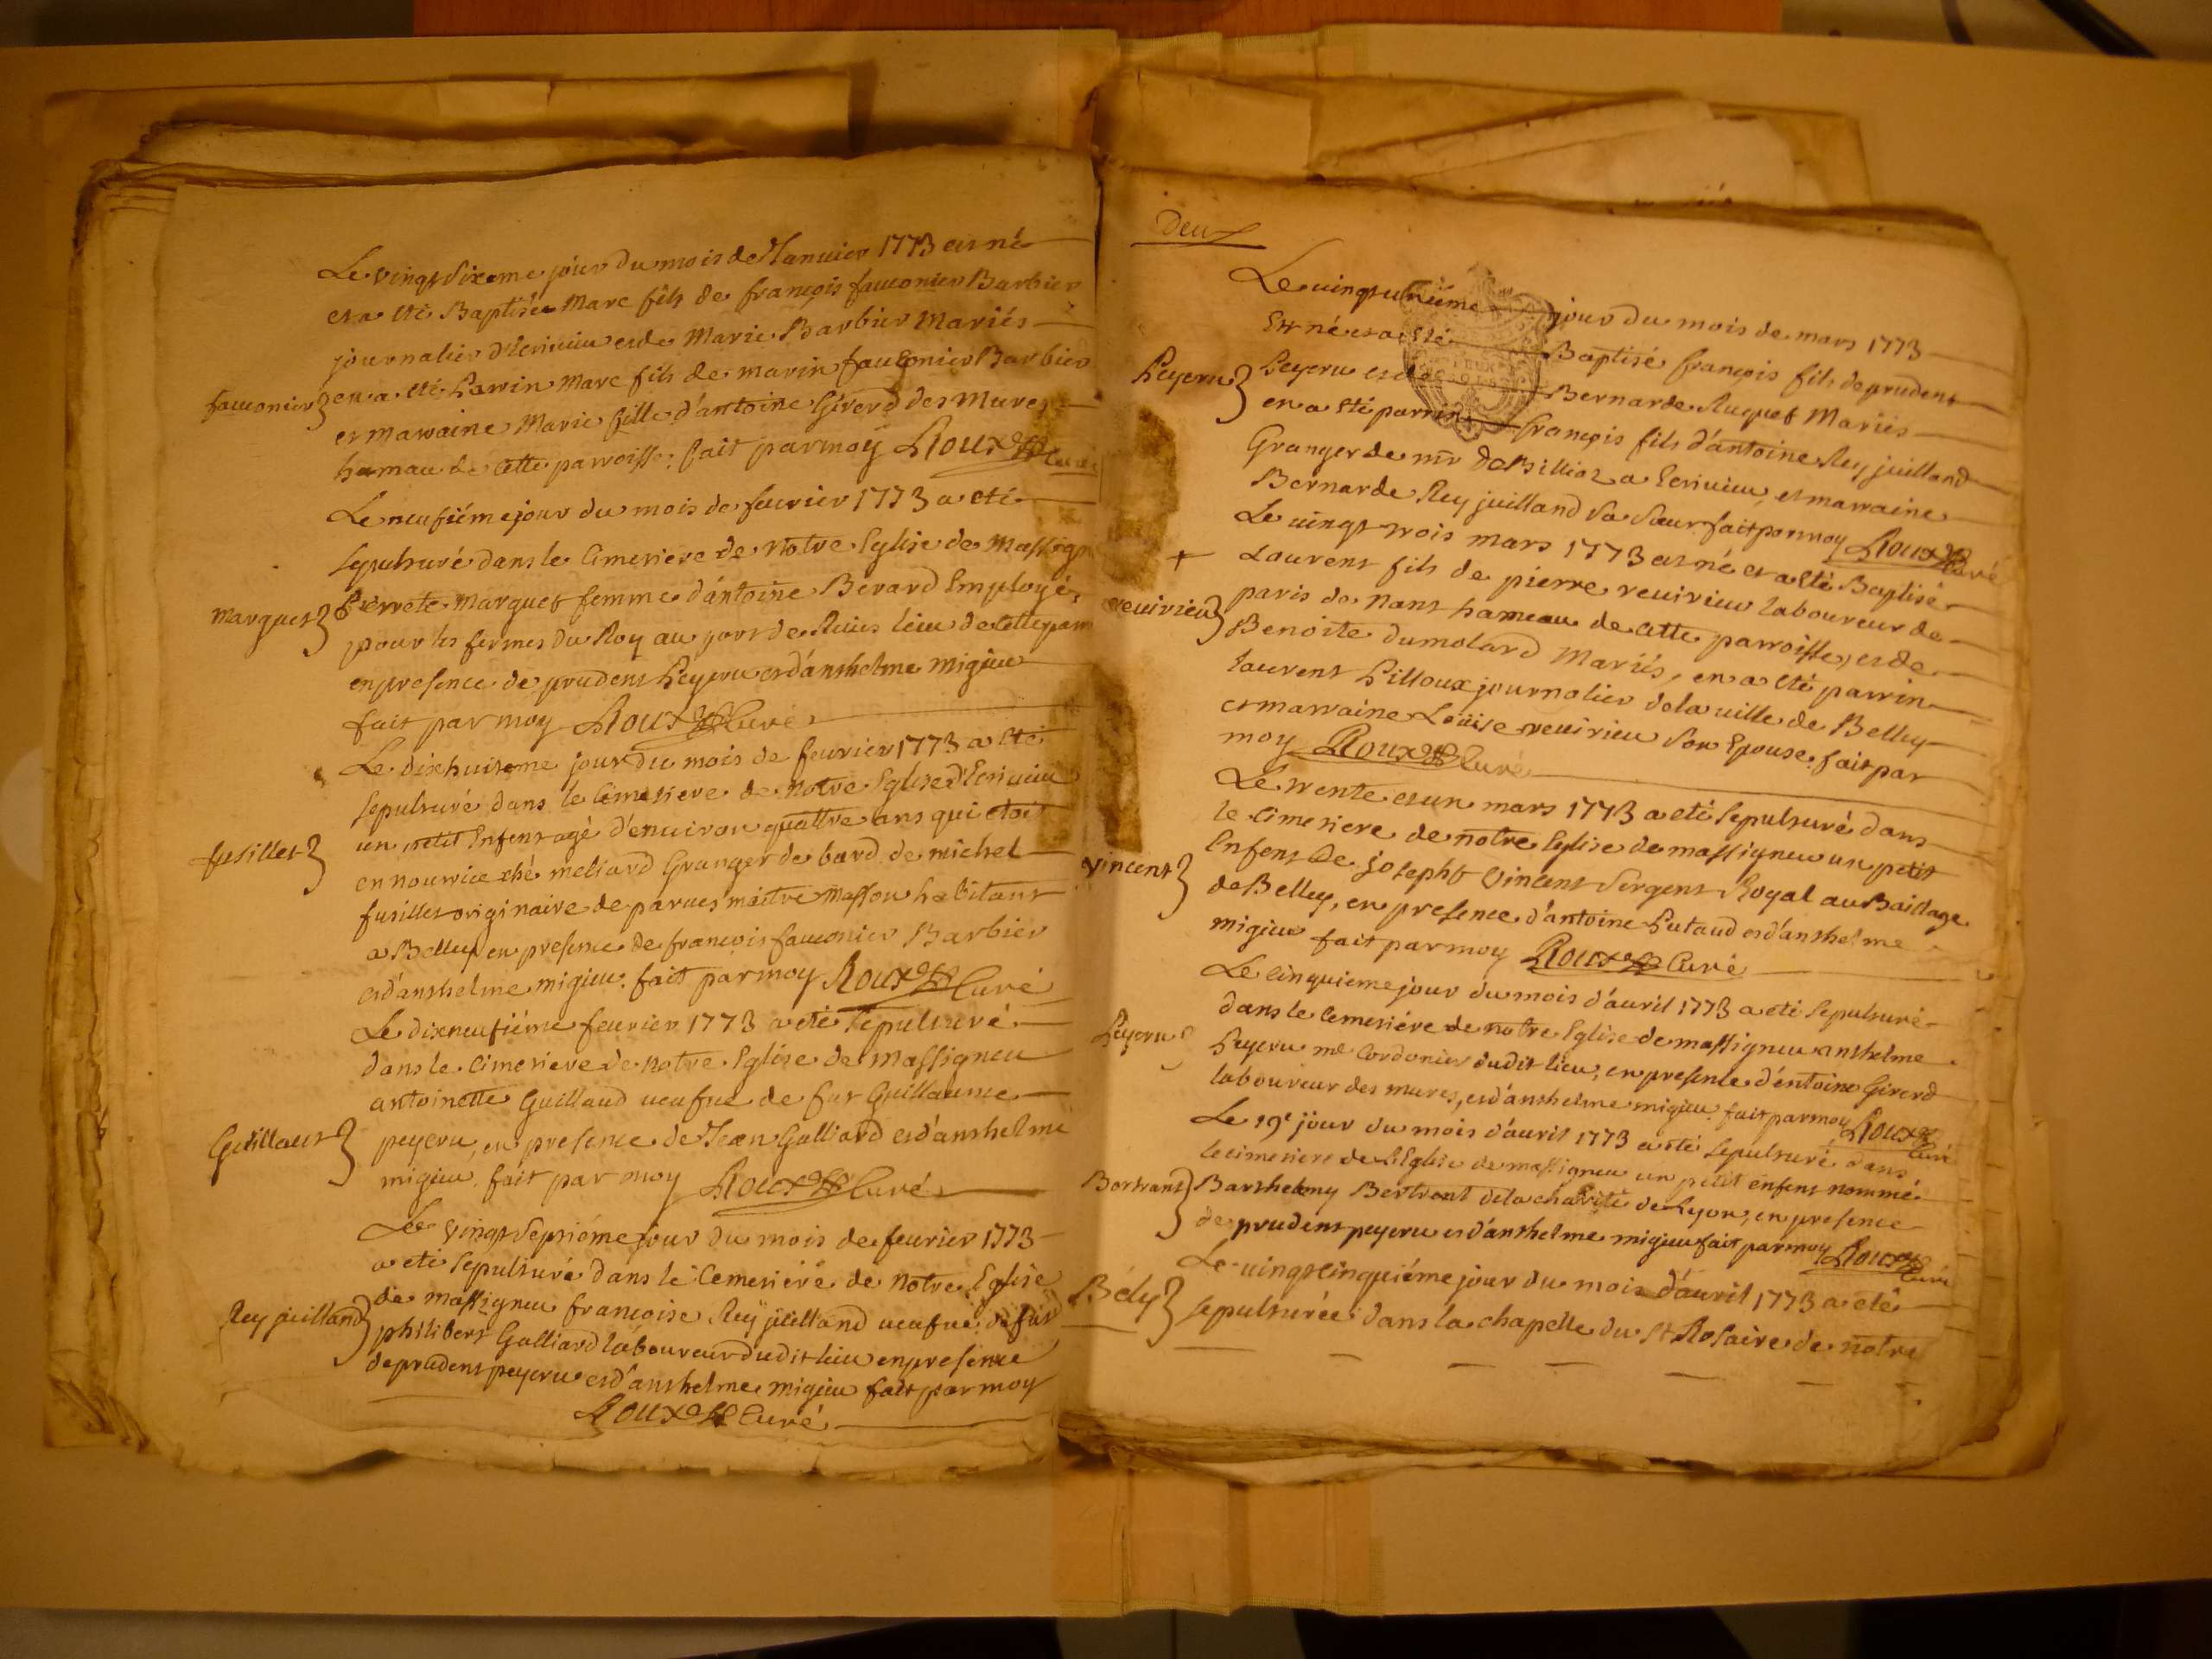 Le vingt sixeme jour du mois de Janvier 1773 est né
et a eté Baptisée Marc fils de françois fauconier Barbier
journalier d'Ecrivieu et de Marie Barbier Mariés
fauconier} en a eté Parrin Marc fils de marin fauconier Barbier
et marraine Marie fille d'antoine Girerd des Mures
hamau de cette parroisse: fait par moÿ Roux Curé
Le neufiéme jour du mois de fevrier 1773 a eté
sepulturé dans le Cimetiere de Notre Eglise de Massign
Marquet} Pierrete Marquet femme d'antoine Berard Employé
pour les fermes du Roy au port de lieu de cette parr
en presence de prudent Peyeru et d'anthelme migieu
fait par moy Roux Curé
Le dixhuiteme jour du mois de fevrier 1773 a eté
sepulturé dans le Cimetiere de Notre Eglise d'Ecrivieu
un petit Enfent agé d'environ quattre ans qui etoit
fusillet} en nourrice ché meliard Granger de bard de michel
fusillet originaire de parves maitre masson habitant
a Belley en presence de francois fauconier Barbier
et d'anthelme migieu: fait par moy Roux Curé
Le dixneufiéme fevrier 1773 a eté sepulturé
dans le Cimetiere de Notre Eglise de Massigneu
antoinette Guillaud veufve de fut Guillaume
Guillaut} peyeru, en presence de Jean Galliard et d'anthelme
migieu. fait par moy Roux Curé
Le vingt septiéme jour du mois de fevrier 1773
a eté sepulturé dans le Cemetiére de Notre Eglise
de massigneu françoise Reÿ juilland veufve de fut
Rey juilland} philibert Galliard laboureur dudit lieu en presence
de prudent peyeru et d'anthelme migieu fait par moy
Roux Curé
Deux
Le vingt uniéme jour du mois de mars 1773
Est né et a eté Baptisé françois fils de prudent
Peyeru} Peyeru et de Bernarde Ruquet Mariés
en a eté parrin françois fils d'antoine Rey juilland
Granger de mr DeBillioz a Ecrivieu, et marraine
Bernarde Rey juilland sa sœur. fait par moy Roux Curé
Le vingt trois mars 1773 est né et a eté Baptisé
+ Laurent fils de pierre revirieu laboureur de
revirieu} paris de Nant hameau de cette parroisse, et de
Benoite dumolard Mariés, en a eté parrin
laurent Pilloux journalier de la ville de Belley
et marraine Louise revirieu son Epouse. fait par
moy Roux Curé
Le trente et un mars 1773 a eté sepulturé dans
le Cimetiere de notre Eglise de massigneu un petit
Vincent} Enfent de josepht Vincent Sergent Royal au Baillage
de Belley, en presence d'antoine Putaud et d'anthelme
migieu fait par moy Roux Curé
Le cinquieme jour du mois d'avril 1773 a eté sepulturé
dans le Cemetiére de notre Eglise de massigneu anthelme
Peyeru} Peyeru me Cordonier dudit lieu, en presence d'entoine Girerd
laboureur des mures, et d'anthelme migieu. fait par moy Roux Curé
Le 19e jour du mois d'avril 1773 a eté sepulturé dans
le cimetiere de l'Eglise de massigneu un petit enfent nommé
Bertrant} Barthelemy Bertrant de la charité de Lyon, en presence
de prudent peyeru et d'anthelme migieu fait par moy Roux Curé
Le vingt cinquiéme jour du mois d'avril 1773 a eté
Bély} sepulturée dans la chapelle du St Rosaire de notre